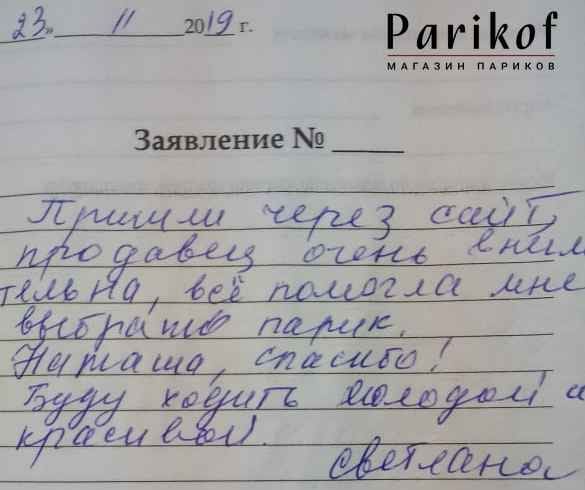 23» 11 2019 г.
Parikof
МАГАЗИН ПАРИКОВ
Заявление №
Пришли через сайт,
продавец очень вним
тельна, всё помогла мне
выбрать парик.
Наташа, спасибо!
Буду ходить молодой и
красивой.
Светлана